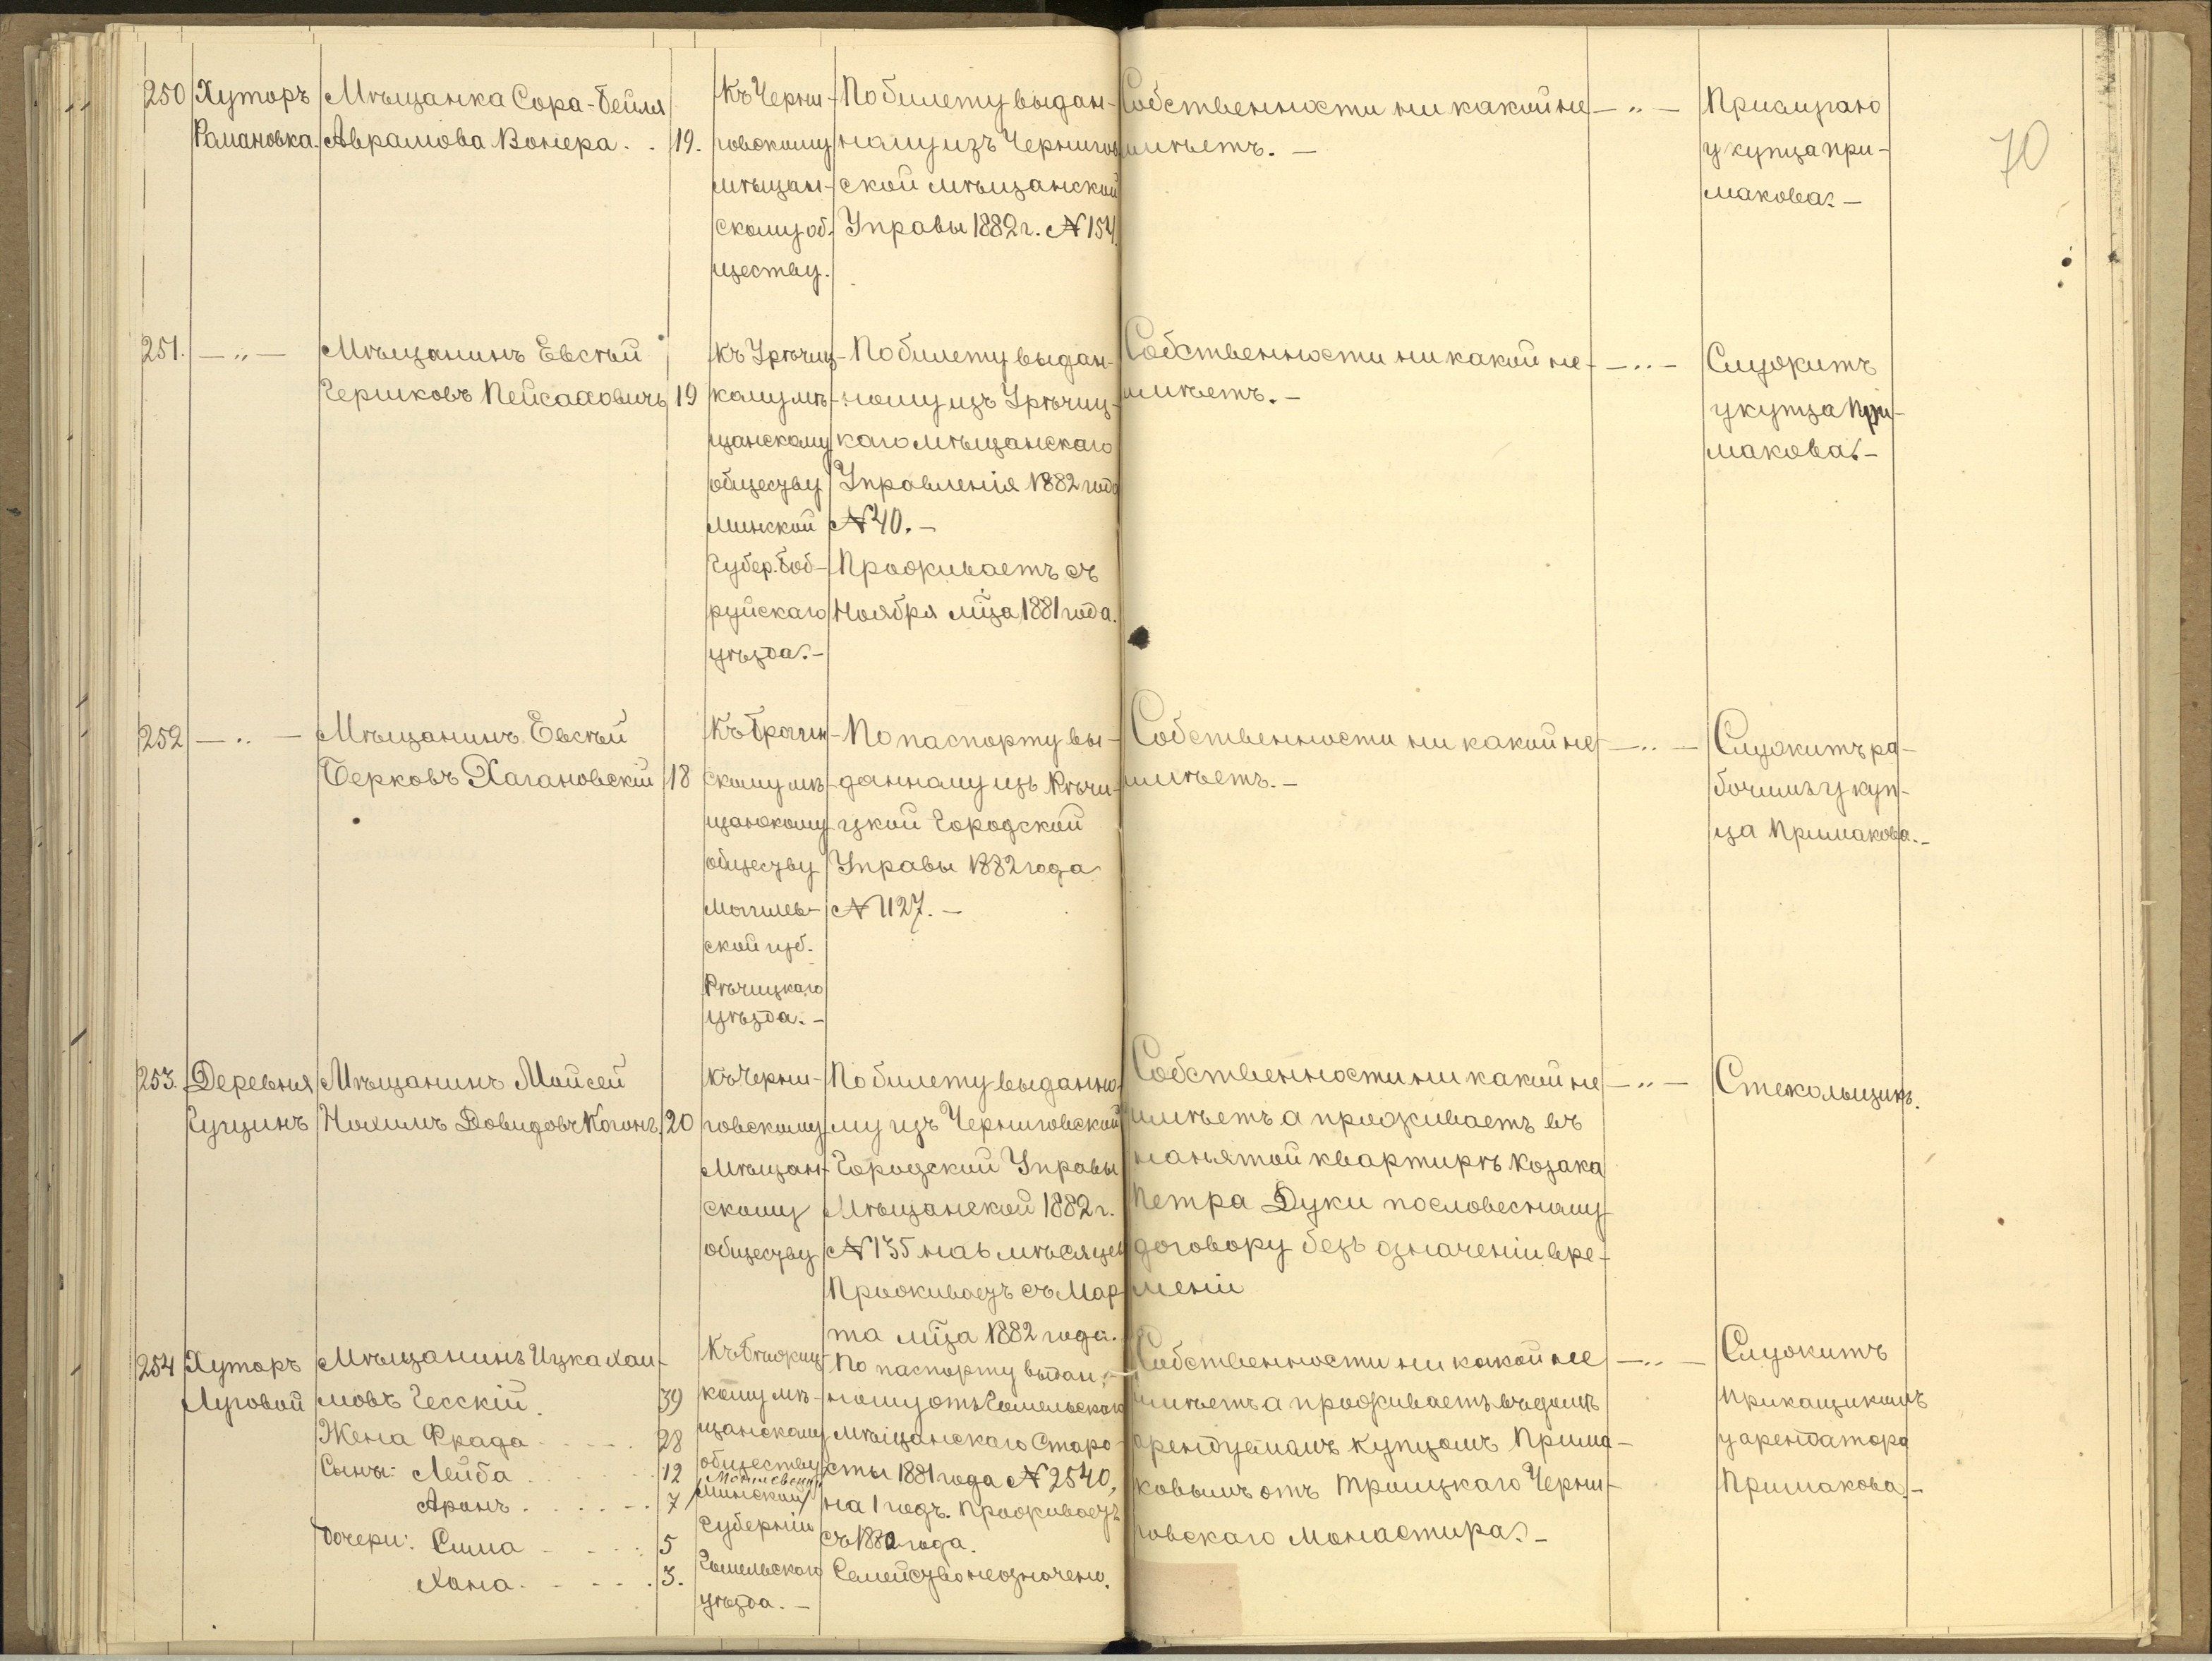 70
250
Хуторъ
Рамановка.
Мѣщанка Сора-Бейля
Аврамова Вонера. . 19.
Къ Черни-
говскому
мѣщан-
скому об-
ществу.
По билету выдан-
ному изъ Чернигов
ской мѣщанской
Управы 1882 г. № 154
Собственности ни какой не
имѣетъ. –
– „ –
Прислугаю
у купца При-
макова. –
251. – „ –
Мѣщанинъ Евсѣй
Гершковъ Пейсаховичъ 19
Къ Урѣчиц-
кому мѣ-
щанскому
обществу
Минской
Губер. Боб-
руйскаго
уѣзда. –
По билету выдан-
ному изъ Урѣчиц-
каго мѣщанскаго
Управленія 1882 года
№ 40. –
Проживаетъ съ
Ноября мца 1881 года.
Собственности ни какой не-
имѣетъ. –
– „ –
Служитъ
у купца При-
макова. –
252 – „ –
Мѣщанинъ Евсѣй
Берковъ Хагановскій 18
Къ Брагин-
скому мѣ-
щанскому
обществу
Могилев-
ской губ.
Рѣчицкаго
уѣзда. –
По паспорту вы-
данному изъ Рѣчи-
цкой Городской
Управы 1882 года
№ 1127. –
Собственности ни какой не
имѣетъ. –
– „ –
Служитъ ра-
бочимъ у куп-
ца Примакова. –
253.
Деревня
Гущинъ
Мѣщанинъ Мойсей
Нохимъ Довидовъ Когонъ 20
Къ Черни-
говскому
Мѣщан-
скому
обществу
По билету выданно-
му изъ Черниговской
Городской Управы
Мѣщанской 1882 г.
№ 135 на 6 мѣсяцев
Проживаетъ съ Мар-
та мца 1882 года.
Собственности ни какой не
имѣетъ а проживаетъ въ
нанятой квартирѣ козака
Петра Дуки по словесному
договору безъ означеніи вре-
меніи
– „ –
Стекольщикъ.
254
Хуторъ
Луговой
Мѣщанинъ Ицка Хаи-
мовъ Гесскій. 39
Жена Фрада - - - - 28
Сынъ: Лейба . . . . 12
Аронъ . . . . - . 7
Дочери: Сима - - - : 5
Хана. - - - - . 3.
Къ Бѣлжиц-
кому мѣ-
щанскому
обществу
Могилевской
/Минской/
Губерніи
Гомельскаго
уѣзда. –
По паспорту выдан-
ному отъ Гомельскаго
Мѣщанскаго Старо-
сты 1881 года № 2540,
на 1 годъ. Проживаетъ
съ 1880 года.
Семейство не означено.
Собственности ни какой не
имѣетъ а проживаетъ въ домѣ
арендуемамъ купцомъ Прима-
ковымъ отъ Троицкаго Черни-
говскаго Монастира. –
– „ –
Служитъ
прикащикомъ
у арендатора
Примакова. –